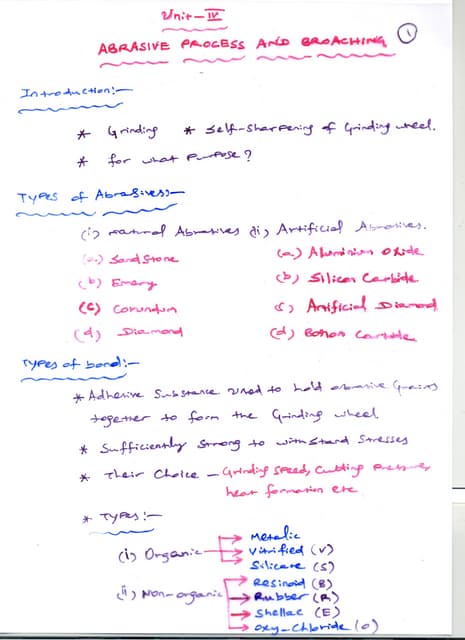 Unit-IV
ABRASIVE PROCESS AND BROACHING 1
Introduction:-
* Grinding * Self-Sharpening of Grinding wheel.
* for what purpose?
Types of Abrasives:-
(i) natural Abrasives (ii) Artificial Abrasives.
(a) Sand Stone (a) Aluminium Oxide
(b) Emery (b) Silicon Carbide
(c) Corundum (c) Artificial Diamond
(d) Diamond (d) Boron Carbide
Types of bond:-
* Adhesive Substance used to hold abrasive Grains
together to form the Grinding wheel.
* Sufficiently Strong to withstand Stresses
* Their Choice - Grinding Speed, Cutting Pressure,
heat formation etc
* Types:-
(i) Organic Metalic
Vitrified (V)
Silicate (S)
(ii) Non-organic Resinoid (B)
Rubber (R)
Shellac (E)
Oxy-Chloride (O)